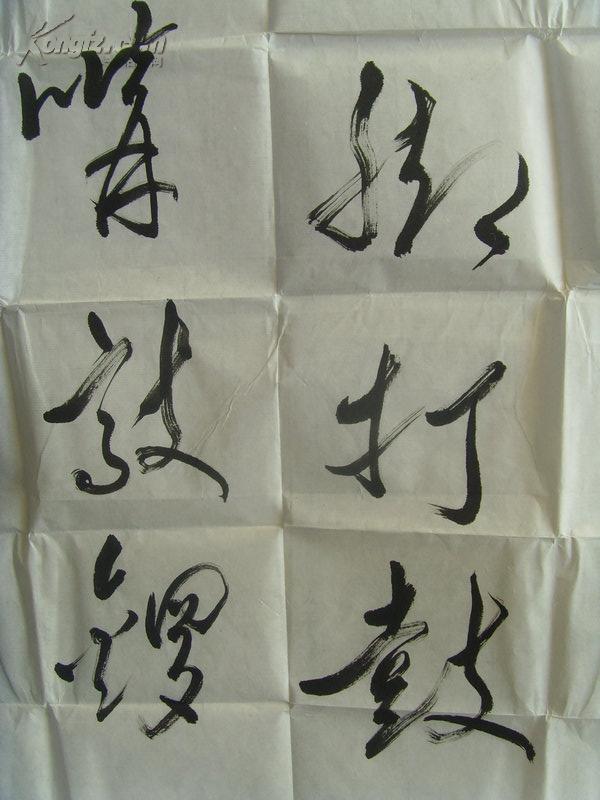 Kongfz.com
脚打鼓
嘴敲锣